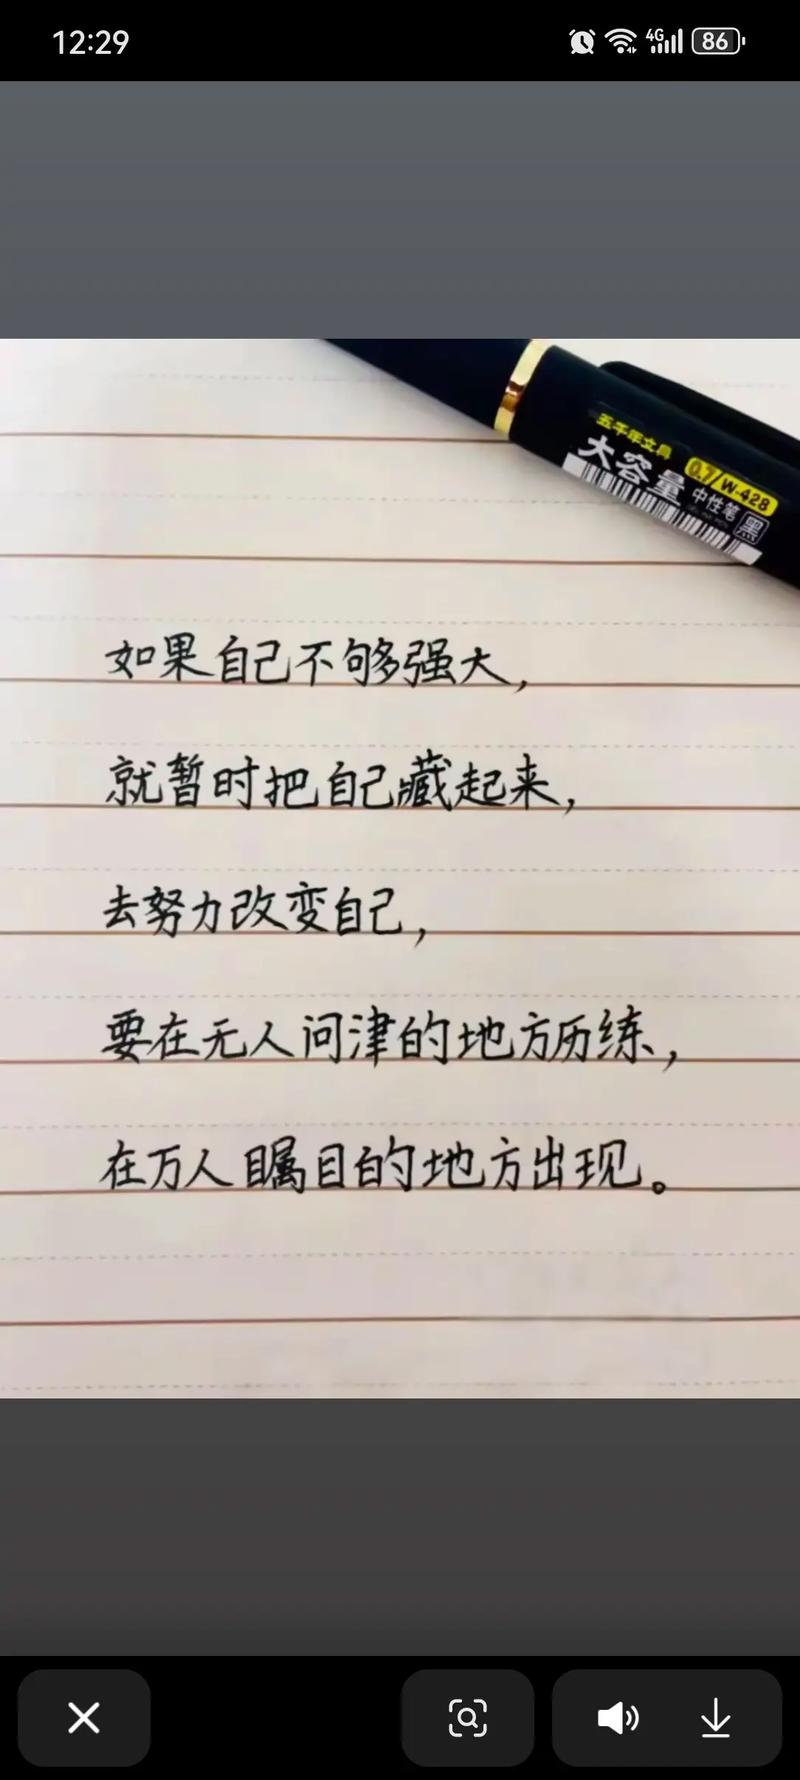 12:29
4G
86
五千年文具
大容量
0.7/W-428
中性笔 黑
如果自己不够强大，
就暂时把自己藏起来，
去努力改变自己，
要在无人问津的地方历练，
在万人瞩目的地方出现。